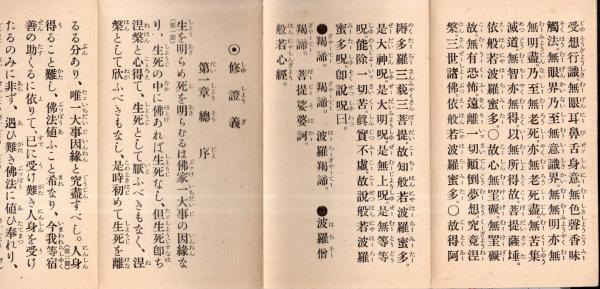 受想行識無眼耳鼻舌身意無色聲香味
觸法無眼界乃至無意識界無無明亦無
無明盡乃至無老死亦無老死盡無苦集
滅道無智亦無得以無所得故菩提薩埵
依般若波羅蜜多〇故心無罣礙無罣礙
故無有恐怖遠離一切顛倒夢想究竟涅
槃三世諸佛依般若波羅蜜多〇故得阿
耨多羅三藐三菩提故知般若波羅蜜多
是大神呪是大明呪是無上呪是無等等
呪能除一切苦眞實不虛故說般若波羅
蜜多呪卽說呪曰。
●羯諦。羯諦。波羅羯諦。●波羅僧
羯諦。菩提娑婆訶。
般若心經。
◉修證義
第一章 總序
(第一節)生を明らめ死を明らむるは佛家一大事の因緣な
り、生死の中に佛あれば生死なし、但生死卽ち
涅槃と心得て、生死として厭ふべきもなく、涅
槃として欣ふべきもなし、是時初めて生死を離
るる分あり、唯一大事因緣と究盡すべし。(第二節)人身
得ること難し、佛法値ふこと希なり、今我等宿
善の助くるに依りて、已に受け難き人身を受け
たるのみに非ず、遇ひ難き佛法に値ひ奉れり、